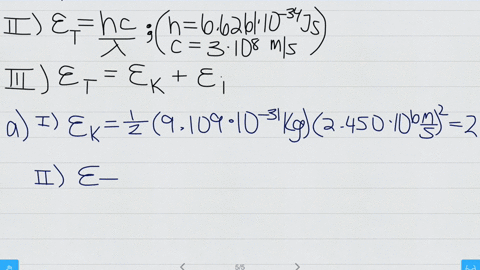 II) ε_T = hc/λ ; (h = 6.6261·10^-34 Js
c = 3·10^8 m/s)
III) ε_T = ε_K + ε_i
a) I) ε_K = 1/2 (9.109·10^-31 Kg)(2.450·10^6 m/s)^2 = 2
II) ε
5/5